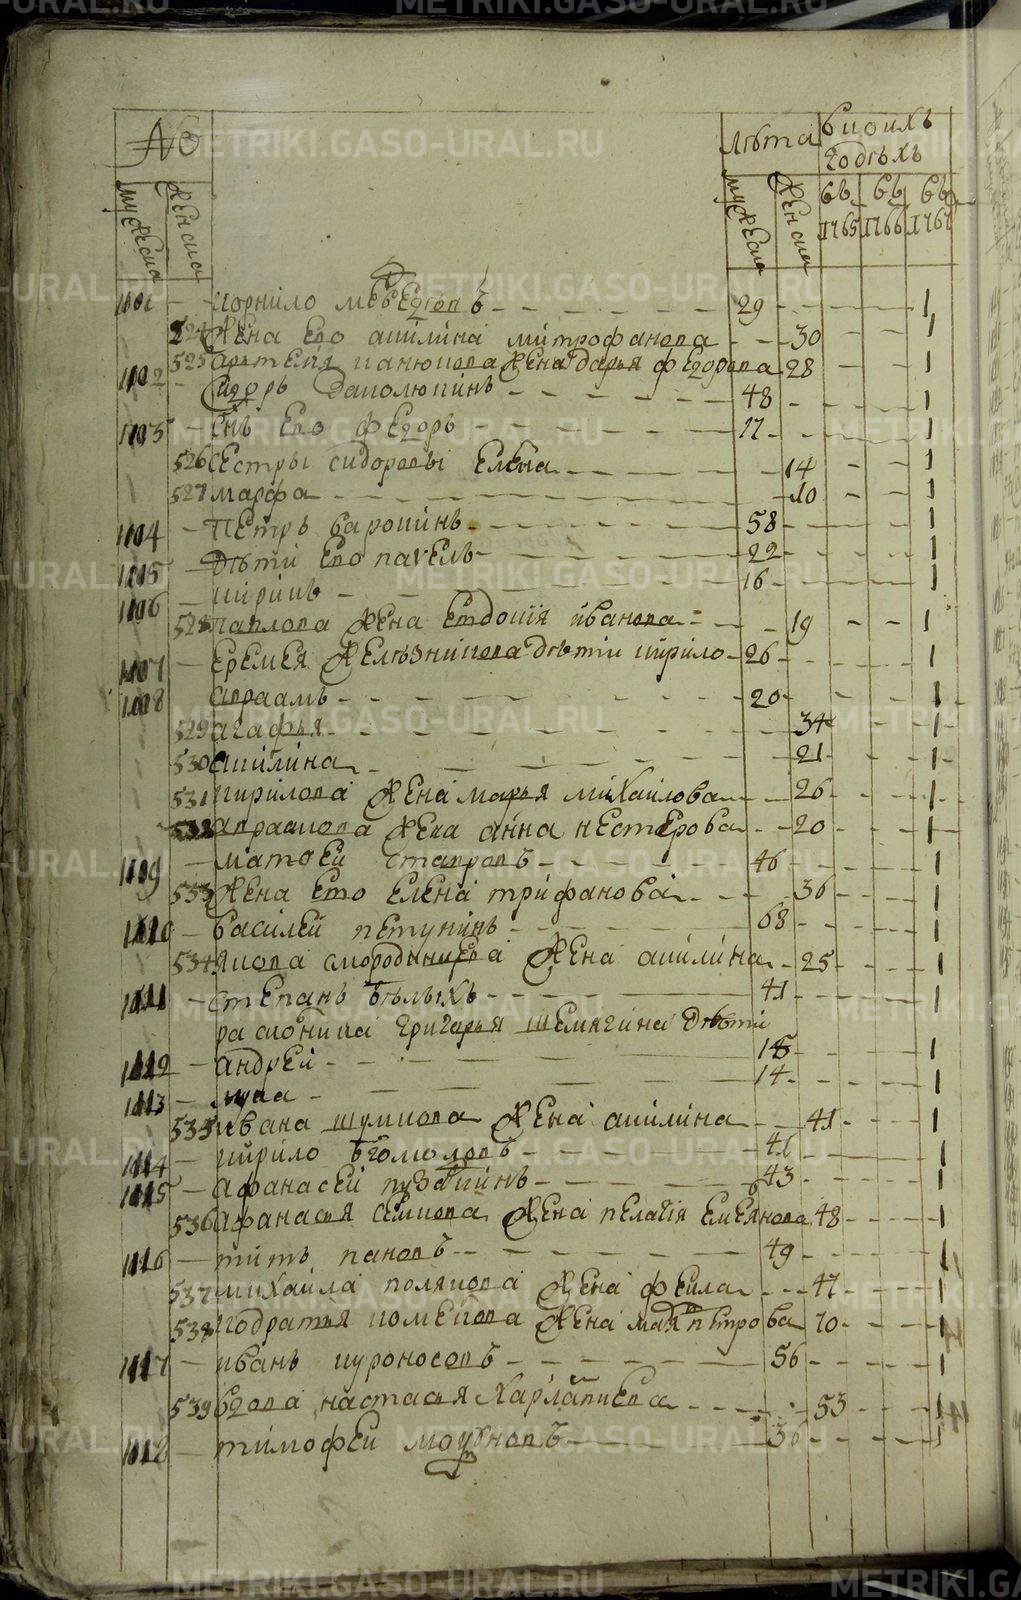 №
мужеска
женска
лѣта
мужеска
женска
в коихъ
годѣхъ
въ 1765
въ 1766
въ 1767
1101 корнило медведковъ 29 1
524 жена ево акилина митрофанова 30 1
525 артемя жена дарья федорова 28 1
1102 Сидоръ 48 1
1103 Снъ ево федоръ 17 1
526 сестры сидоровы елена 14 1
527 марфа 10 1
1104 петръ 58 1
1105 дѣти ево павелъ 22 1
1106 16 1
528 павлова жена евдокия иванова 19 1
1107 еремея дѣти кирило 26 1
1108 авраамъ 20 1
529 агафья 34 1
530 акилина 21 1
531 кирилова жена марья михаилова 26 1
532 авраамова жена анна нестерова 20 1
1109 матфеи 46 1
533 жена ево елена трифанова 36 1
1110 василеи петунинъ 68 1
534 якова смородинцова жена акилина 25 1
1111 степанъ бѣлыхъ 41 1
расконика григорья шемякина дѣти
1112 андреи 15 1
1113 лука 14 1
535 ивана шумкова жена акилина 41 1
1114 кирило бгомоловъ 41 1
1115 афанасеи 43 1
536 афанасья семкова жена пелагия емеянова 48 1
1116 титъ пановъ 49 1
537 михаила полякова жена фекла 47 1
538 кодратья жена петрова 70 1
1117 иванъ куроносовъ 56 1
539 вдова настасья харлапиева 53 1
1118 тимофеи 36 1
METRIKI.GASO-URAL.RU